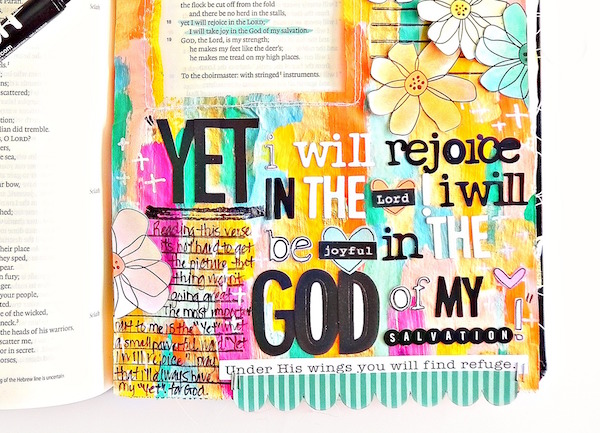 the flock be cut off from the fold
and there be no herd in the stalls,
18 yet I will rejoice in the LORD;
I will take joy in the God of my salvation.
19 GOD, the Lord, is my strength;
he makes my feet like the deer's;
he makes me tread on my high places.
To the choirmaster: with stringed instruments.
scattered;
lian did tremble.
O LORD?
e sea,
ur bow,
hed;
heir place
they sped,
pear.
n fury;
ger.
your people,
ted.
e of the wicked,
neck.
the heads of his warriors,
scatter me,
or in secret.
horses,
g of the Hebrew line is uncertain.
"YET i will rejoice
IN THE Lord i will
be joyful in THE
GOD of MY
SALVATION!"
Reading this verse
it's not hard to get
the picture that
things weren't
going great.
The most important
part to me is the "Yet"
a small powerful word. Yet
I will rejoice. I pray
that I'll always have
my "yet" for God.
Under His wings you will find refuge.